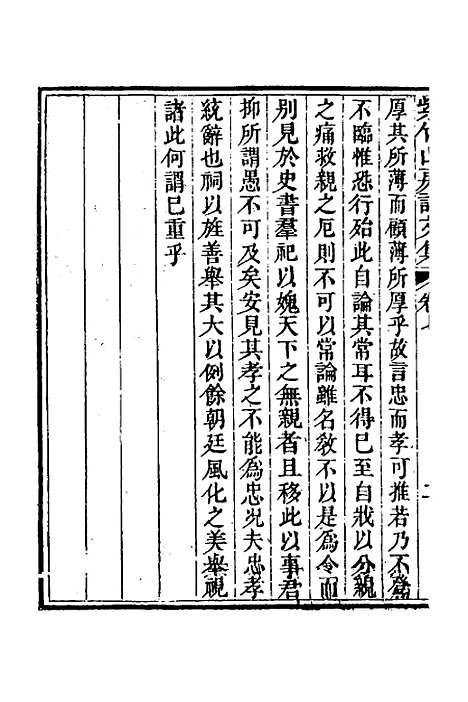 紫竹山房詩文集 卷七 二
厚其所薄而顧薄所厚乎故言忠而孝可推若乃不登
不臨惟恐行殆此自論其常耳不得已至自戕以分親
之痛救親之厄則不可以常論雖名敎不以是爲令而
别見於史書羣祀以媿天下之無親者且移此以事君
抑所謂愚不可及矣安見其孝之不能爲忠况夫忠孝
統辭也祠以旌善舉其大以例餘朝廷風化之美舉視
諸此何謂已重乎